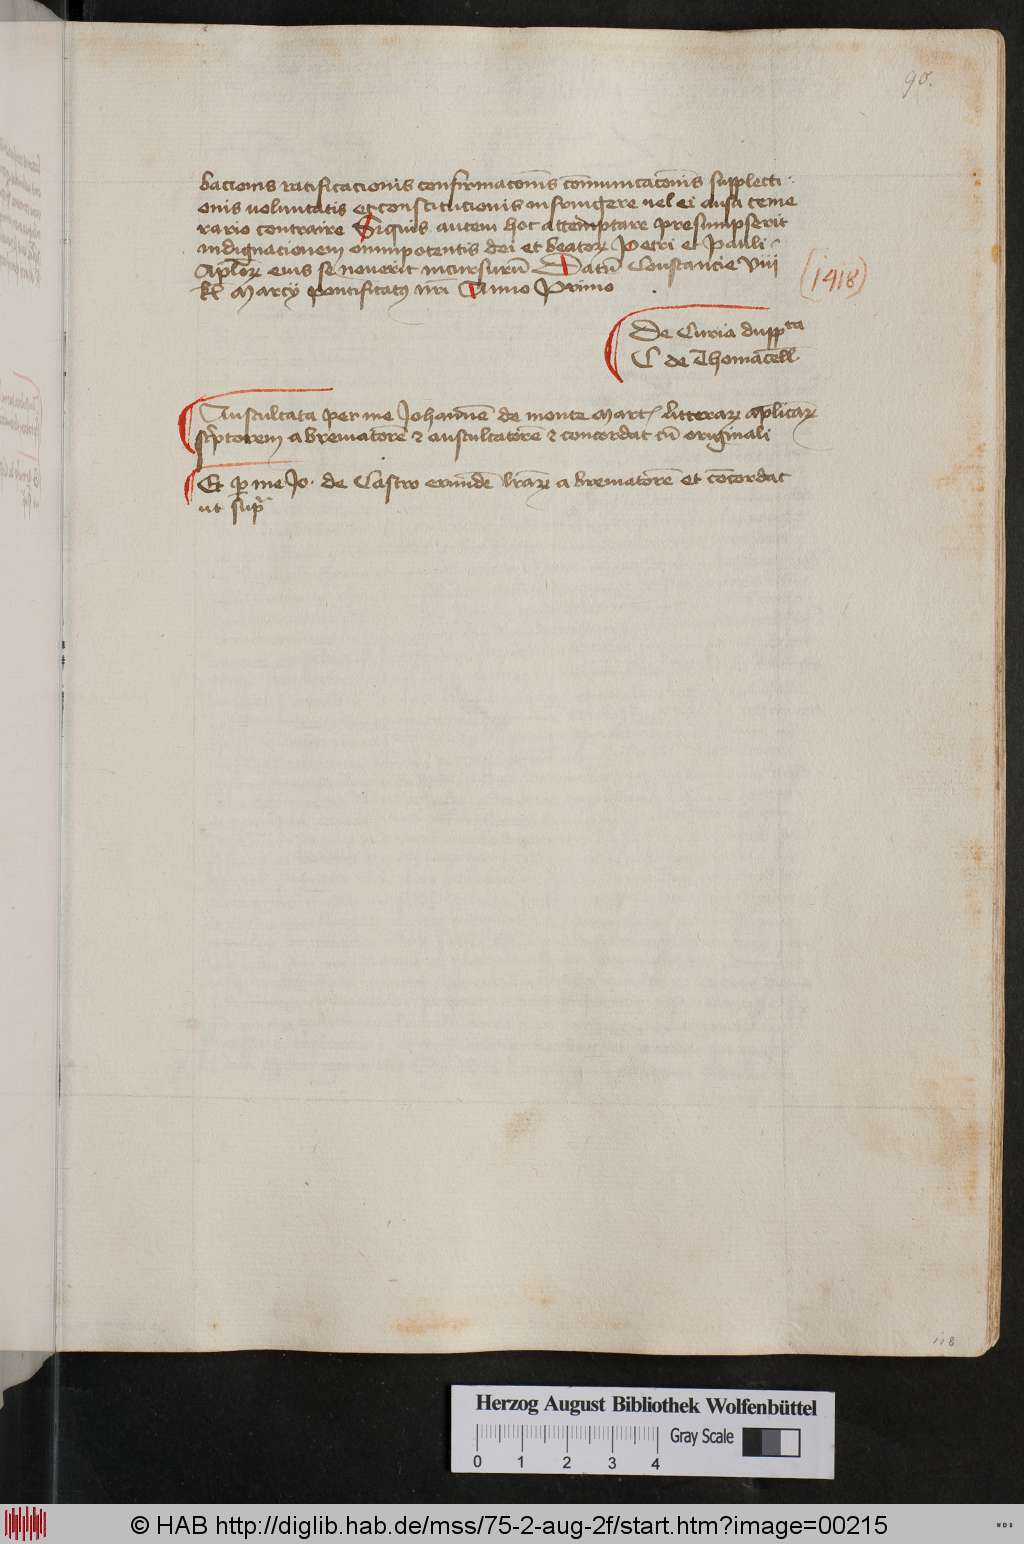 90.
bacionis ratificacionis confirmacōnis cōmunicacōnis supplecti
onis voluntatis et constitucionis infringere vel ei ausu teme
rario contraire Siquis autem hoc attemptare presumpserit
indignacionem omnipotentis dei et beatoꝝ Petri et Pauli
Aplōꝝ eius se noverit incursurū Datū Constancie viii
kl̄ Marcij pontificatꝰ nr̄i Anno Primo
(1418)
De Curia dupp ta
C de Thomacell
Auscultata per me Johannē de monte Mart litteraꝝ aplicaꝝ
scͥptorem abreviatorē et auscultatorē et concordat cū originali
Et ꝑ me Jo. de Castro earundē lrāꝝ abreviatorē et cōcordat
ut supͣ
118
Herzog August Bibliothek Wolfenbüttel
Gray Scale
0 1 2 3 4
© HAB http://diglib.hab.de/mss/75-2-aug-2f/start.htm?image=00215